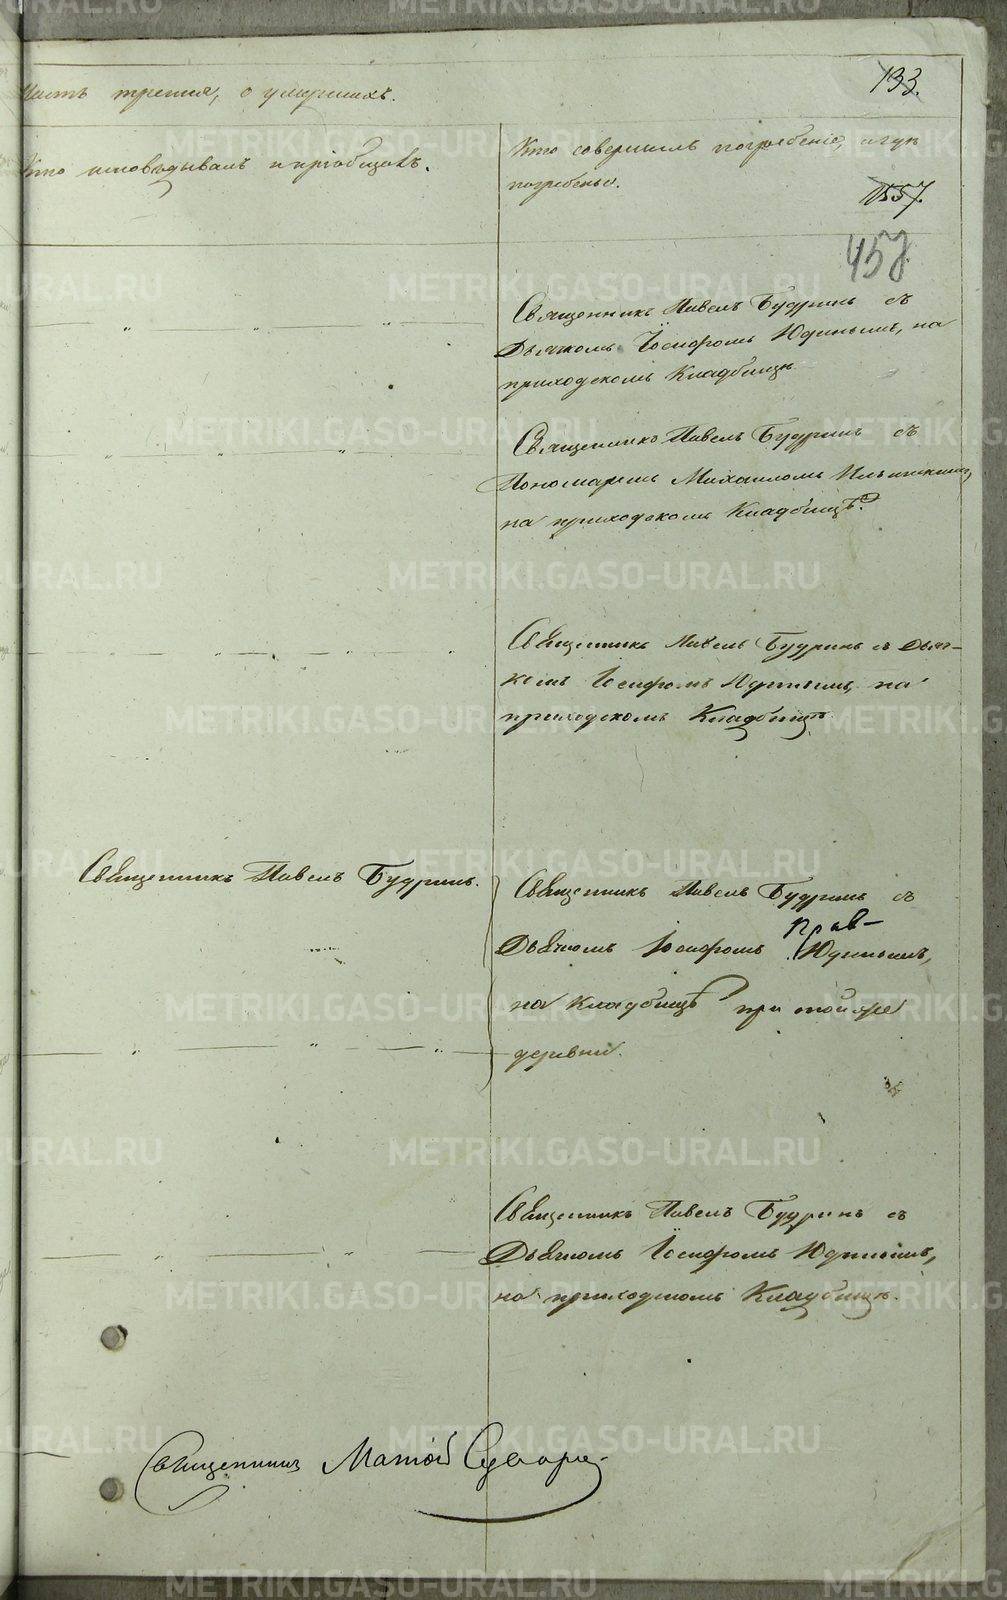 133.
Часть третия, о умершихъ.
Кто исповѣдывалъ и пріобщалъ.
Кто совершилъ погребеніе, и гдѣ
погребены.
1557.
457
Священникъ Павелъ Будринъ съ
Дьячкомъ Іосифомъ Юдинымъ, на
приходскомъ Кладбищѣ.
Священникъ Павелъ Будринъ съ
Пономаремъ Михаиломъ
на приходскомъ Кладбищѣ.
Священникъ Павелъ Будринъ съ Дьяч-
комъ Іосифомъ Юдинымъ, на
приходскомъ Кладбищѣ.
Священникъ Павелъ Будринъ.
Священникъ Павелъ Будринъ съ
Дьячкомъ Іосифомъ Юдинымъ,
на Кладбищѣ при той же
деревни.
Священникъ Павелъ Будринъ съ
Дьячкомъ Іосифомъ Юдинымъ,
на приходскомъ Кладбищѣ.
Священникъ
METRIKI.GASO-URAL.RU